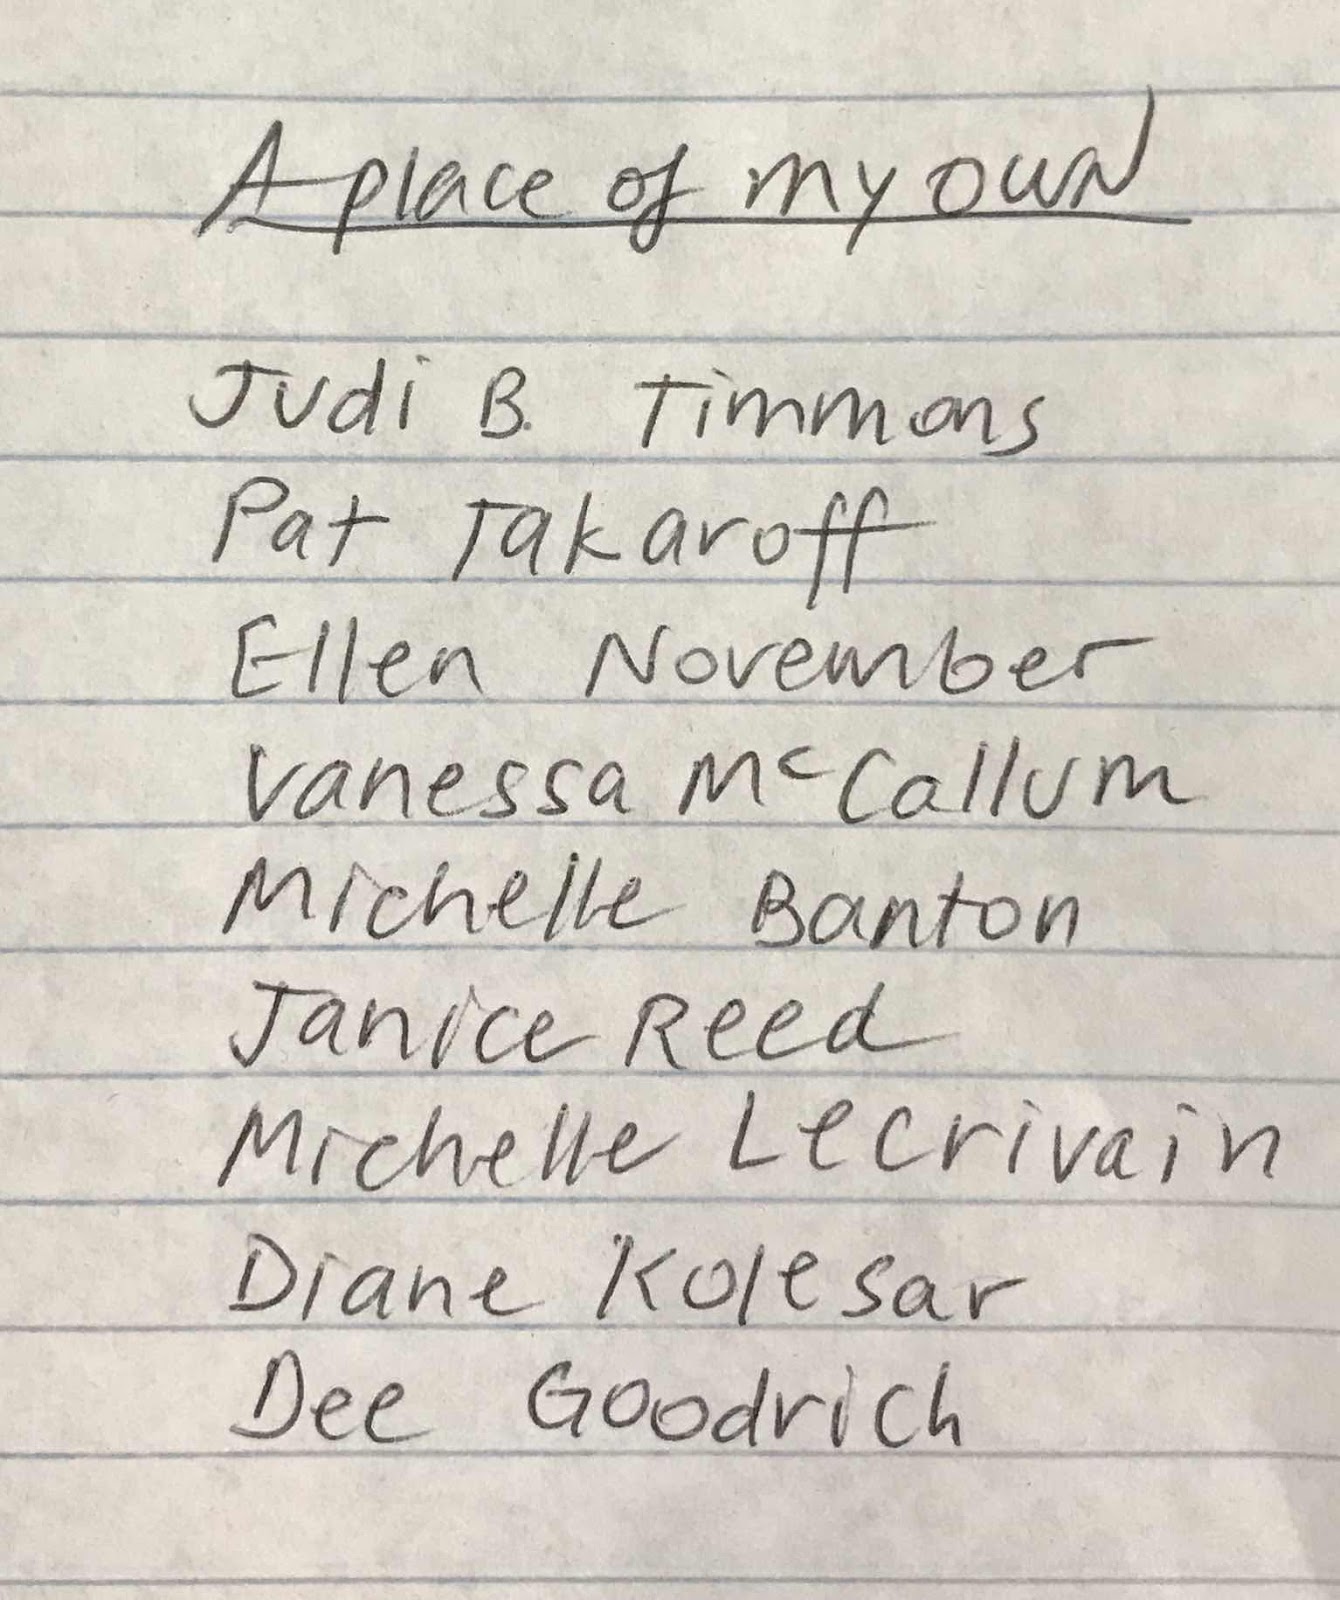 A place of my own
Judi B. Timmons
Pat Takaroff
Ellen November
Vanessa McCallum
Michelle Banton
Janice Reed
Michelle Lecrivain
Diane Kolesar
Dee Goodrich